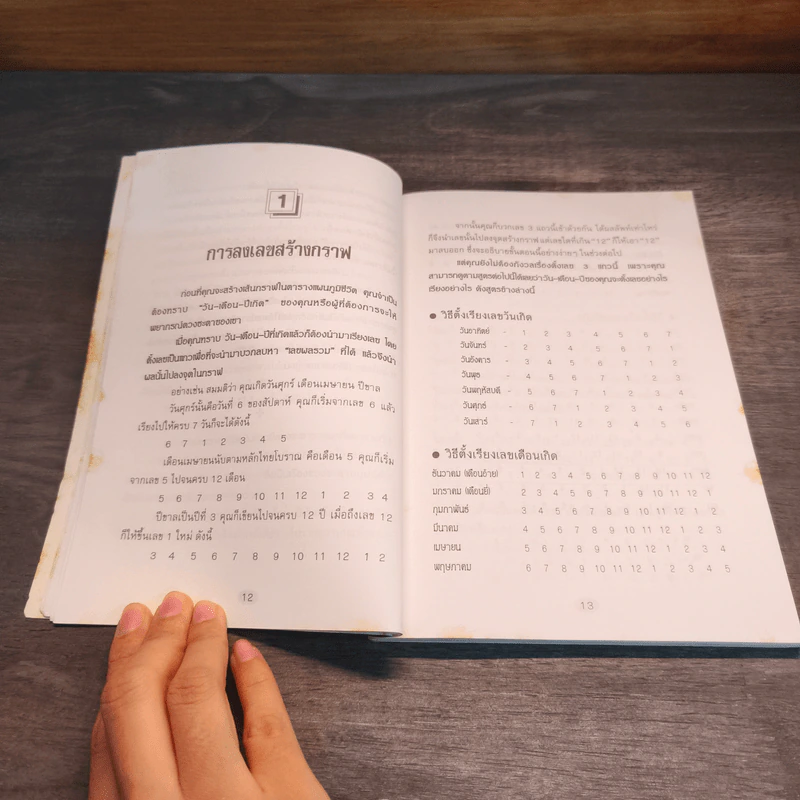 1
การลงเลขสร้างกราฟ
ก่อนที่คุณจะสร้างเส้นกราฟในตารางแผนภูมิชีวิต คุณจำเป็น
ต้องทราบ "วัน-เดือน-ปีเกิด" ของคุณหรือผู้ที่ต้องการจะให้
พยากรณ์ดวงชะตาของเขา
เมื่อคุณทราบ วัน-เดือน-ปีที่เกิดแล้วก็ต้องนำมาเรียงเลข โดย
ตั้งเลขเป็นแถวเพื่อที่จะนำมาบวกลบหา "เลขผลรวม" ที่ได้ แล้วจึงนำ
ผลนั้นไปลงจุดในกราฟ
อย่างเช่น สมมติว่า คุณเกิดวันศุกร์ เดือนเมษายน ปีขาล
วันศุกร์นั้นคือวันที่ 6 ของสัปดาห์ คุณก็เริ่มจากเลข 6 แล้ว
เรียงไปให้ครบ 7 วันก็จะได้ดังนี้
6 7 1 2 3 4 5
เดือนเมษายนนับตามหลักไทยโบราณ คือเดือน 5 คุณก็เริ่ม
จากเลข 5 ไปจนครบ 12 เดือน
5 6 7 8 9 10 11 12 1 2 3 4
ปีขาลเป็นปีที่ 3 คุณก็เขียนไปจนครบ 12 ปี เมื่อถึงเลข 12
ก็ให้ขึ้นเลข 1 ใหม่ ดังนี้
3 4 5 6 7 8 9 10 11 12 1 2
12
จากนั้นคุณก็บวกเลข 3 แถวนี้เข้าด้วยกัน ได้ผลลัพธ์เท่าไหร่
ก็จึงนำเลขนั้นไปลงจุดสร้างกราฟ แต่เลขใดที่เกิน "12" ก็ให้เอา "12"
มาลบออก ซึ่งจะอธิบายขั้นตอนนี้อย่างง่ายๆ ในช่วงต่อไป
แต่คุณยังไม่ต้องกังวลเรื่องตั้งเลข 3 แถวนี้ เพราะคุณ
สามารถดูตามสูตรต่อไปนี้ได้เลยว่าวัน-เดือน-ปีของคุณจะตั้งเลขอย่างไร
เรียงอย่างไร ดังสูตรข้างล่างนี้
● วิธีตั้งเรียงเลขวันเกิด
วันอาทิตย์ - 1 2 3 4 5 6 7
วันจันทร์ - 2 3 4 5 6 7 1
วันอังคาร - 3 4 5 6 7 1 2
วันพุธ - 4 5 6 7 1 2 3
วันพฤหัสบดี - 5 6 7 1 2 3 4
วันศุกร์ - 6 7 1 2 3 4 5
วันเสาร์ - 7 1 2 3 4 5 6
● วิธีตั้งเรียงเลขเดือนเกิด
ธันวาคม (เดือนอ้าย) 1 2 3 4 5 6 7 8 9 10 11 12
มกราคม (เดือนยี่) 2 3 4 5 6 7 8 9 10 11 12 1
กุมภาพันธ์ 3 4 5 6 7 8 9 10 11 12 1 2
มีนาคม 4 5 6 7 8 9 10 11 12 1 2 3
เมษายน 5 6 7 8 9 10 11 12 1 2 3 4
พฤษภาคม 6 7 8 9 10 11 12 1 2 3 4 5
13